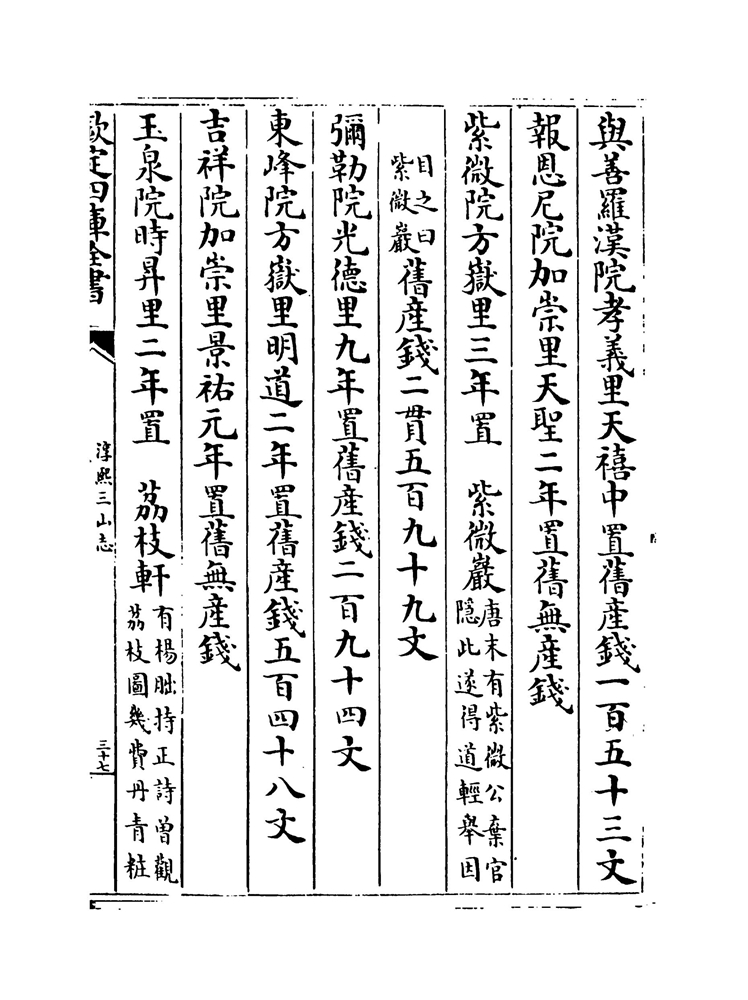 與善羅漢院孝義里天禧中置舊產錢一百五十三文
報恩尼院加崇里天聖二年置舊無產錢
紫微院方嶽里三年置　紫微巖唐末有紫微公棄官
隱此遂得道輕舉因
目之曰
紫微巖舊產錢二貫五百九十九文
彌勒院光德里九年置舊產錢二百九十四文
東峰院方嶽里明道二年置舊產錢五百四十八文
吉祥院加崇里景祐元年置舊無產錢
玉泉院時昇里二年置　荔枝軒有楊朏持正詩曽觀
荔枝圖幾費丹青粧
欽定四庫全書
淳熙三山志
三十七